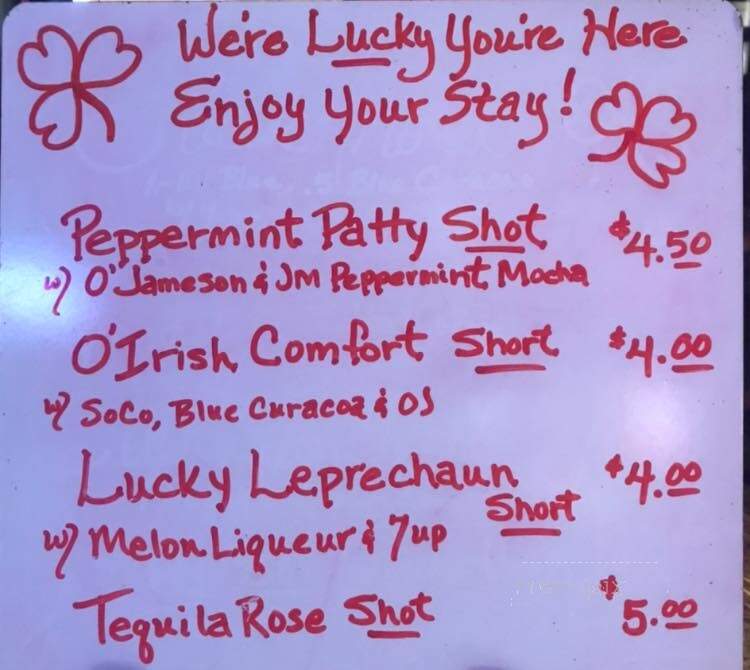 We're Lucky You're Here
Enjoy Your Stay!
Peppermint Patty Shot $4.50
w/ O'Jameson & JM Peppermint Mocha
O'Irish Comfort Short $4.00
w/ SoCo, Blue Curacoa & OJ
Lucky Leprechaun Short $4.00
w/ Melon Liqueur & 7up
Tequila Rose Shot $5.00